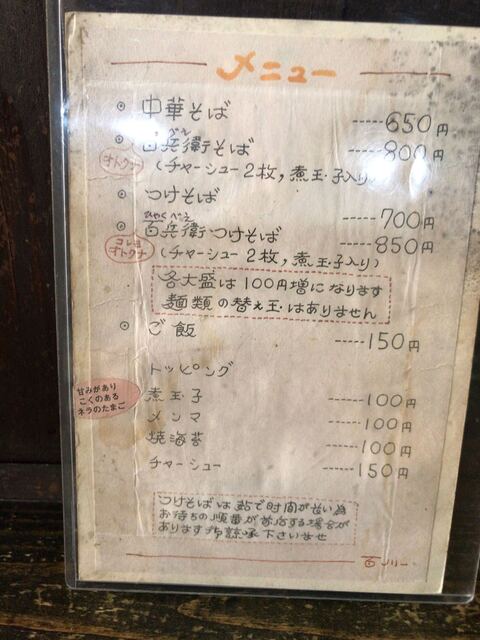 メニュー
中華そば 650円
百兵衛そば 800円
オトクナ
(チャーシュー2枚,煮玉子入り)
つけそば 700円
ひゃくべえ
百兵衛つけそば 850円
コレヨ
オトクナ
(チャーシュー2枚,煮玉子入り)
各大盛は100円増になります
麺類の替え玉はありません
ご飯 150円
トッピング
甘みがあり
こくのある
ネラのたまご
煮玉子 100円
メンマ 100円
焼海苔 100円
チャーシュー 150円
つけそばは茹で時間が長い為
お待ちの順番が前后する場合が
あります御諒承下さいませ